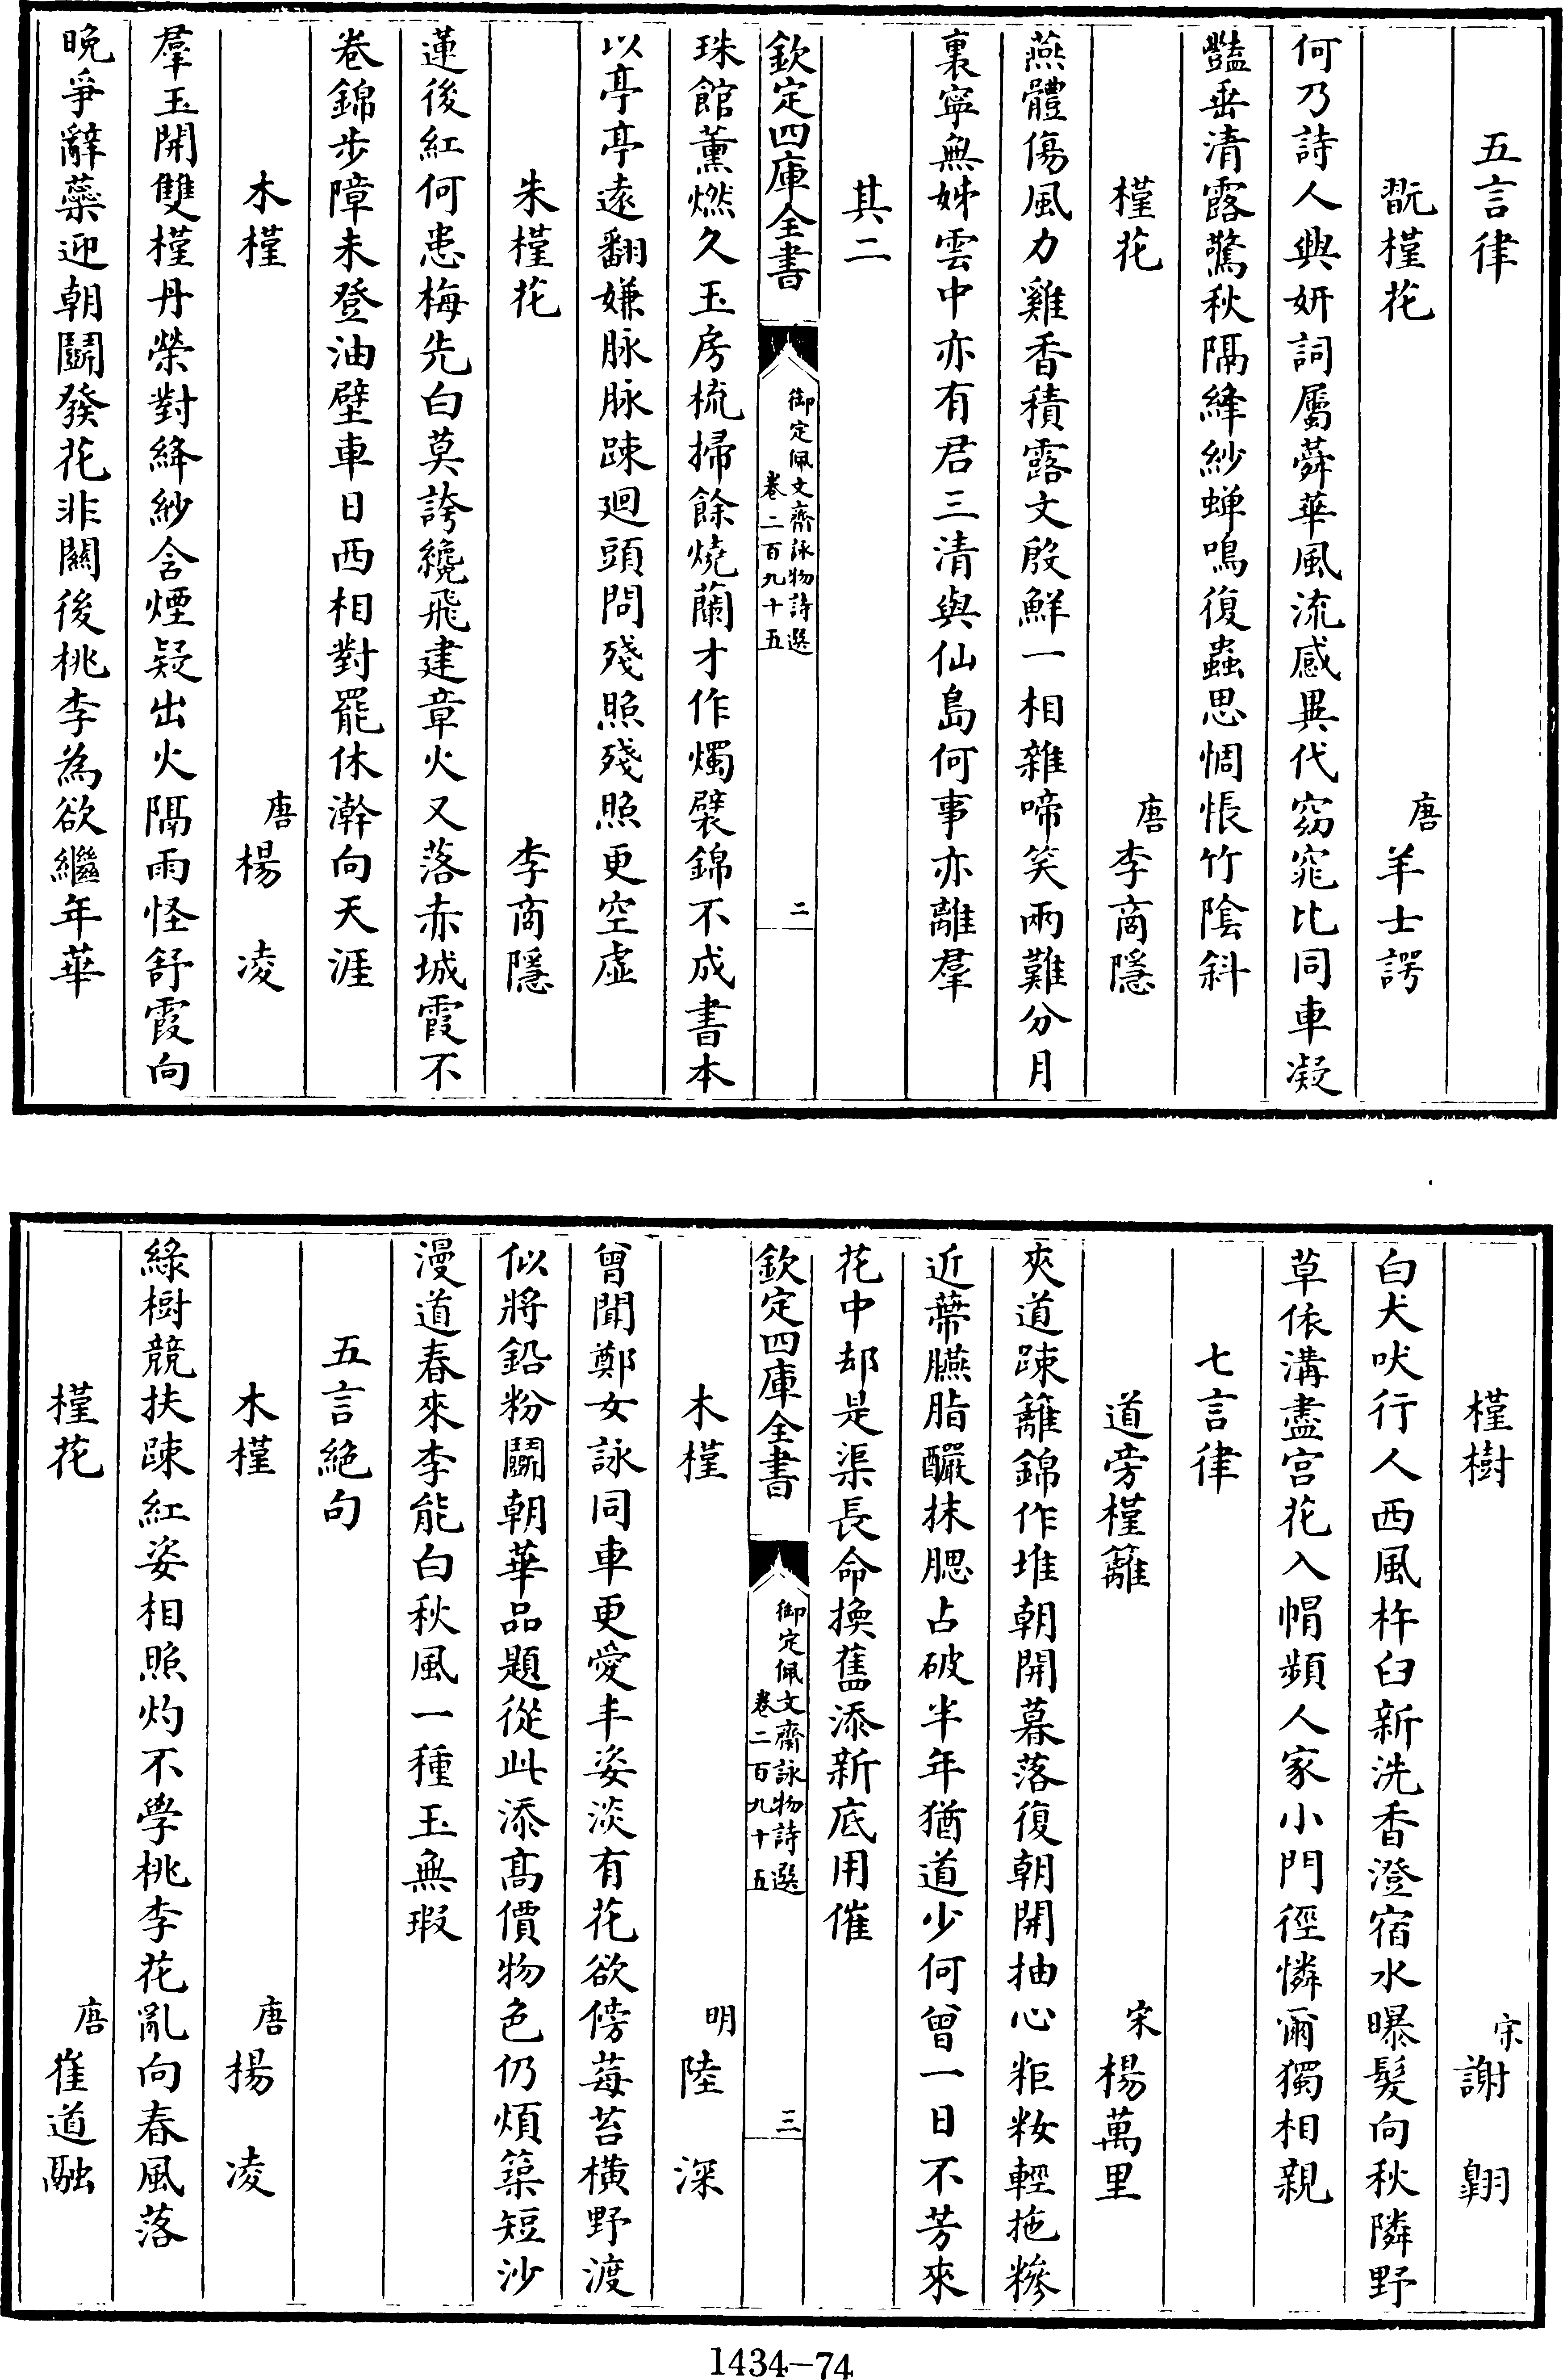 五言律
翫槿花 唐 羊士諤
何乃詩人興妍詞屬蕣華風流感異代窈窕比同車凝
豔垂清露驚秋隔絳紗蟬鳴復蟲思惆悵竹陰斜
槿花 唐 李商隱
燕體傷風力雞香積露文殷鮮一相雜啼笑兩難分月
裏寧無姊雲中亦有君三清與仙島何事亦離羣
其二
欽定四庫全書 御定佩文齋詠物詩選 卷二百九十五 二
珠館薰燃久玉房梳掃餘燒蘭才作燭襞錦不成書本
以亭亭遠翻嫌脉脉踈廻頭問殘照殘照更空虛
朱槿花 李商隱
蓮後紅何患梅先白莫誇纔飛建章火又落赤城霞不
卷錦步障未登油壁車日西相對罷休澣向天涯
木槿 唐 楊凌
羣玉開雙槿丹榮對絳紗含煙疑出火隔雨怪舒霞向
晚爭辭蘂迎朝鬬發花非關後桃李為欲繼年華
槿樹 宋 謝翱
白犬吠行人西風杵臼新洗香澄宿水曝髮向秋隣野
草依溝盡宫花入帽頻人家小門徑憐爾獨相親
七言律
道旁槿籬 宋 楊萬里
夾道踈籬錦作堆朝開暮落復朝開抽心粔籹輕拖糝
近蔕臙脂釅抹腮占破半年猶道少何曾一日不芳來
花中却是渠長命換舊添新底用催
欽定四庫全書 御定佩文齋詠物詩選 卷二百九十五 三
木槿 明 陸深
曾聞鄭女詠同車更愛丰姿淡有花欲傍莓苔橫野渡
似將鉛粉鬬朝華品題從此添髙價物色仍煩築短沙
漫道春來李能白秋風一種玉無瑕
五言絶句
木槿 唐 楊凌
綠樹競扶踈紅姿相照灼不學桃李花亂向春風落
槿花 唐 崔道融
1434–74